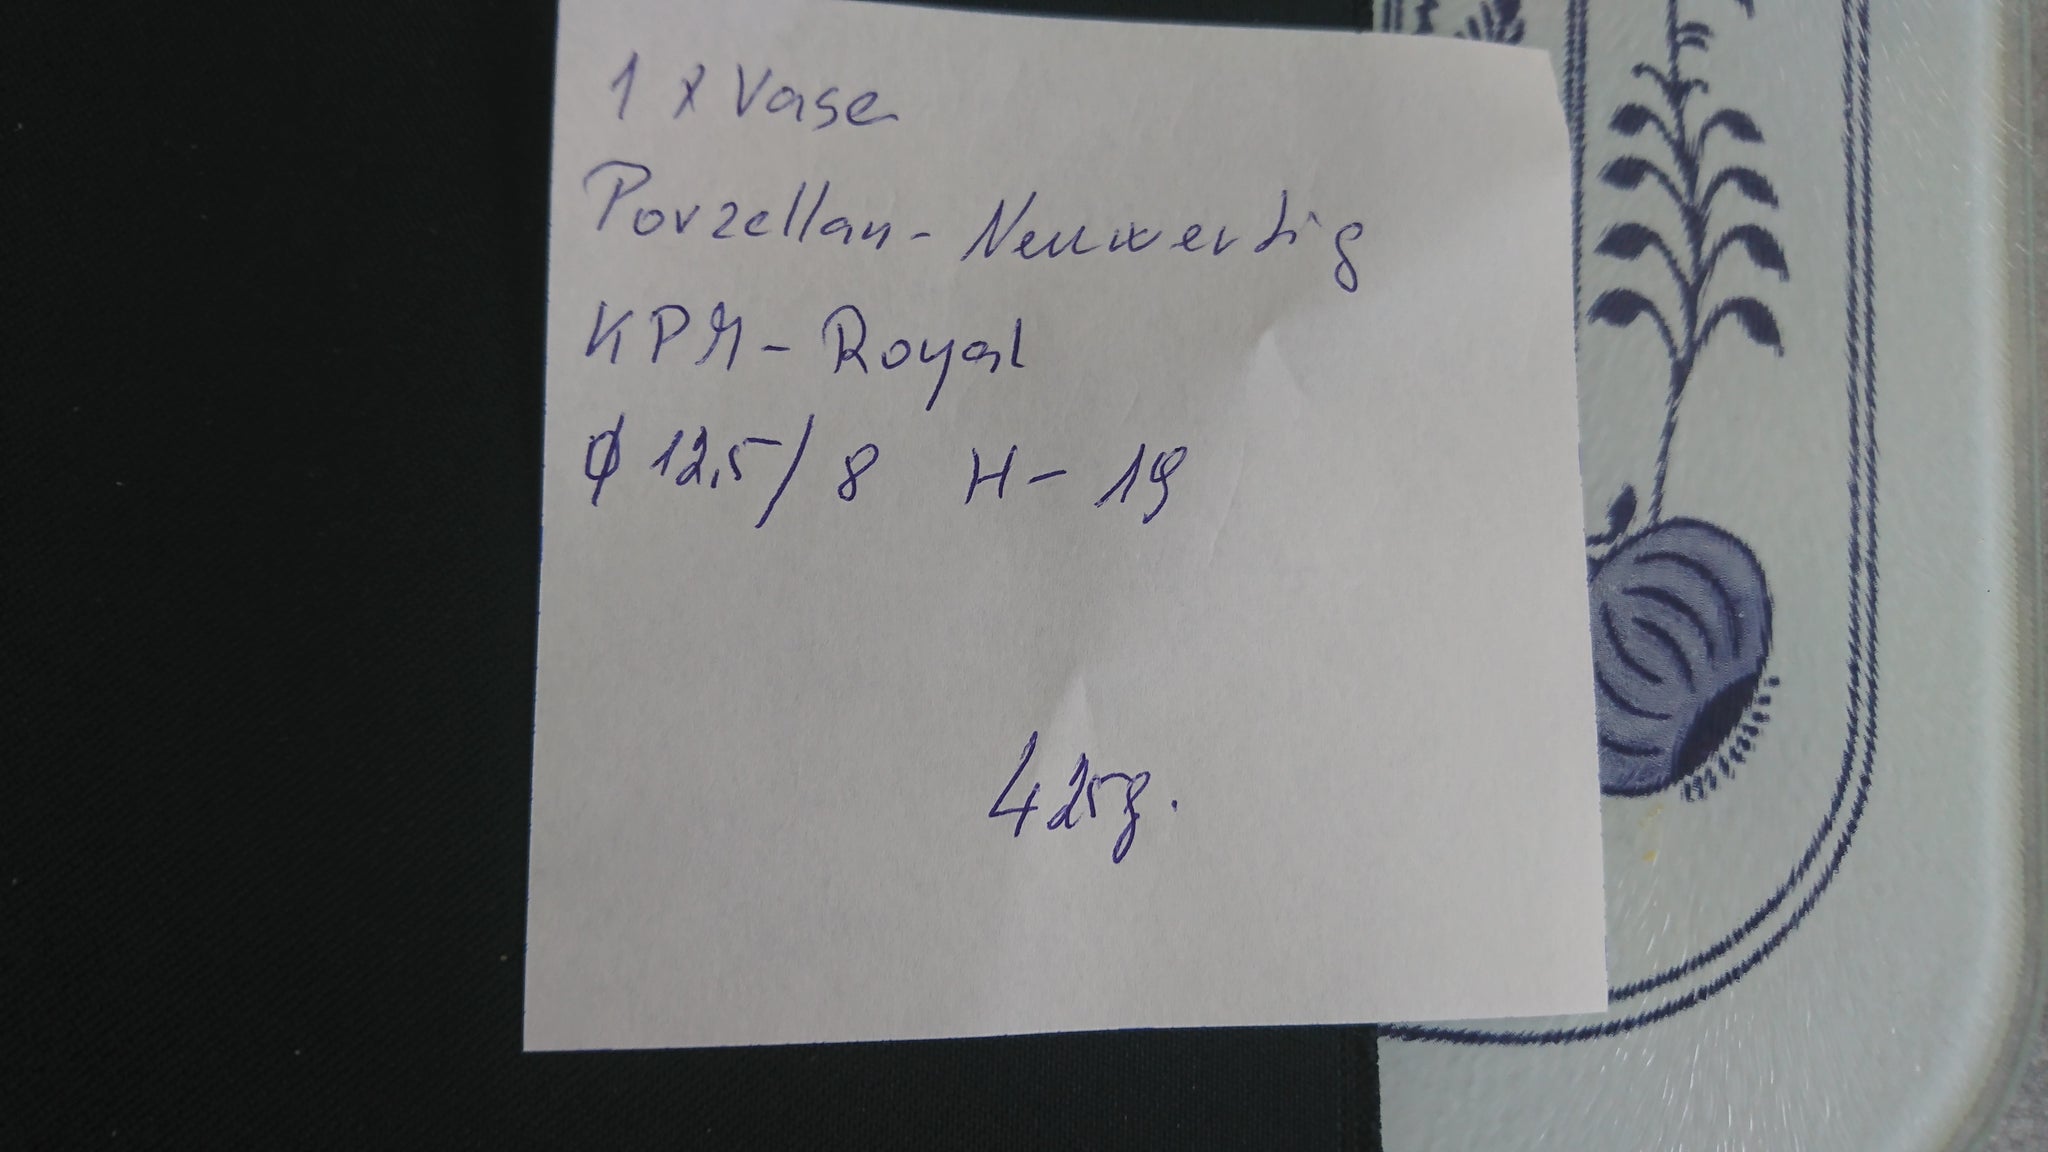 1 x Vase
Porzellan - Neuwertig
KPM - Royal
Ø 12,5 / 8 H - 19
425g.